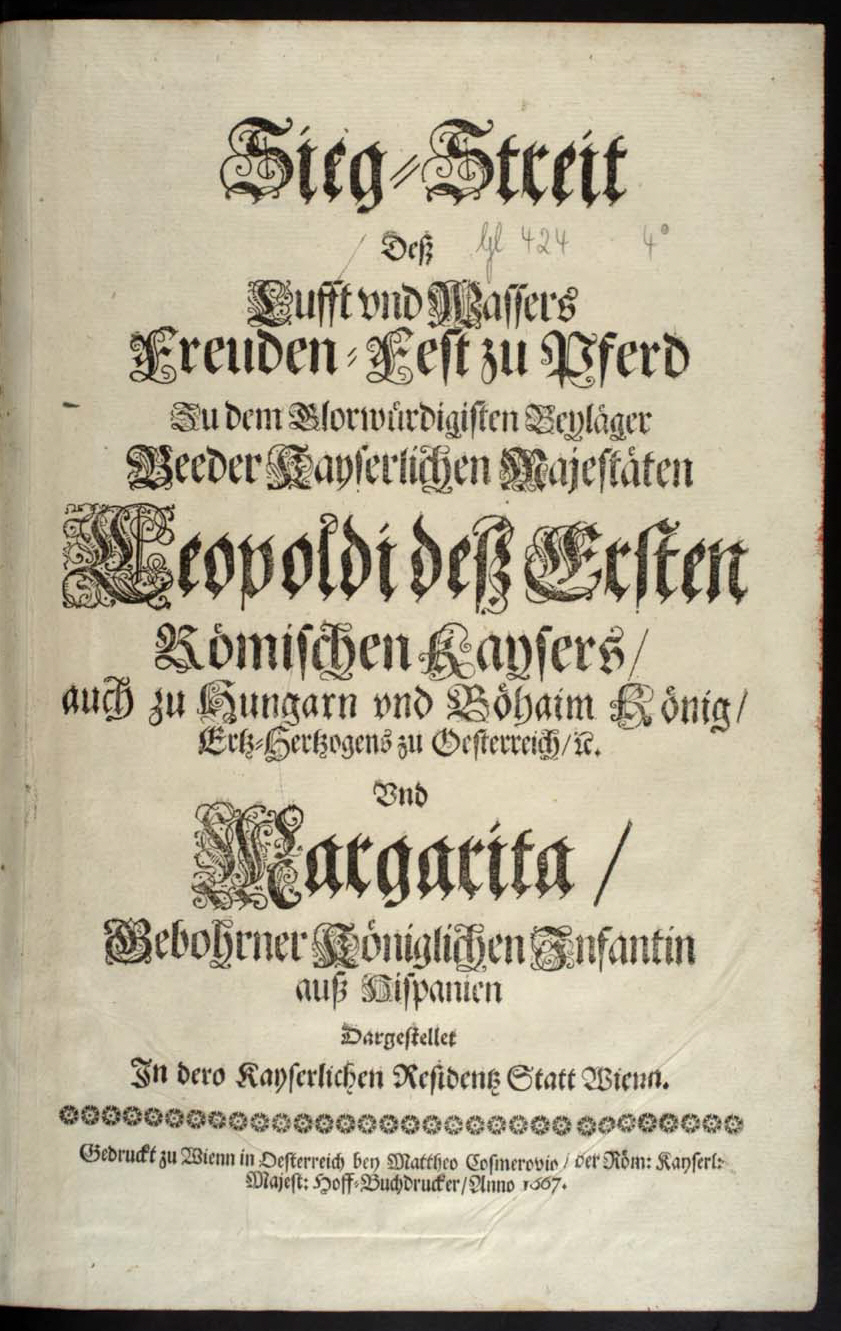 Sieg-Streit
Deß gl 424 4°
Lufft vnd Wassers
Freuden-Fest zu Pferd
Zu dem Glorwürdigisten Beyläger
Beeder Kayserlichen Majestäten
Leopoldi deß Ersten
Römischen Kaysers/
auch zu Hungarn vnd Böhaim König/
Ertz-Hertzogens zu Oesterreich/ꝛc.
Vnd
Margarita/
Gebohrner Königlichen Infantin
auß Hispanien
Dargestellet
In dero Kayserlichen Residentz Statt Wienn.
Gedruckt zu Wienn in Oesterreich bey Mattheo Cosmerovio/ der Röm: Kayserl:
Majest: Hoff-Buchdrucker/Anno 1667.